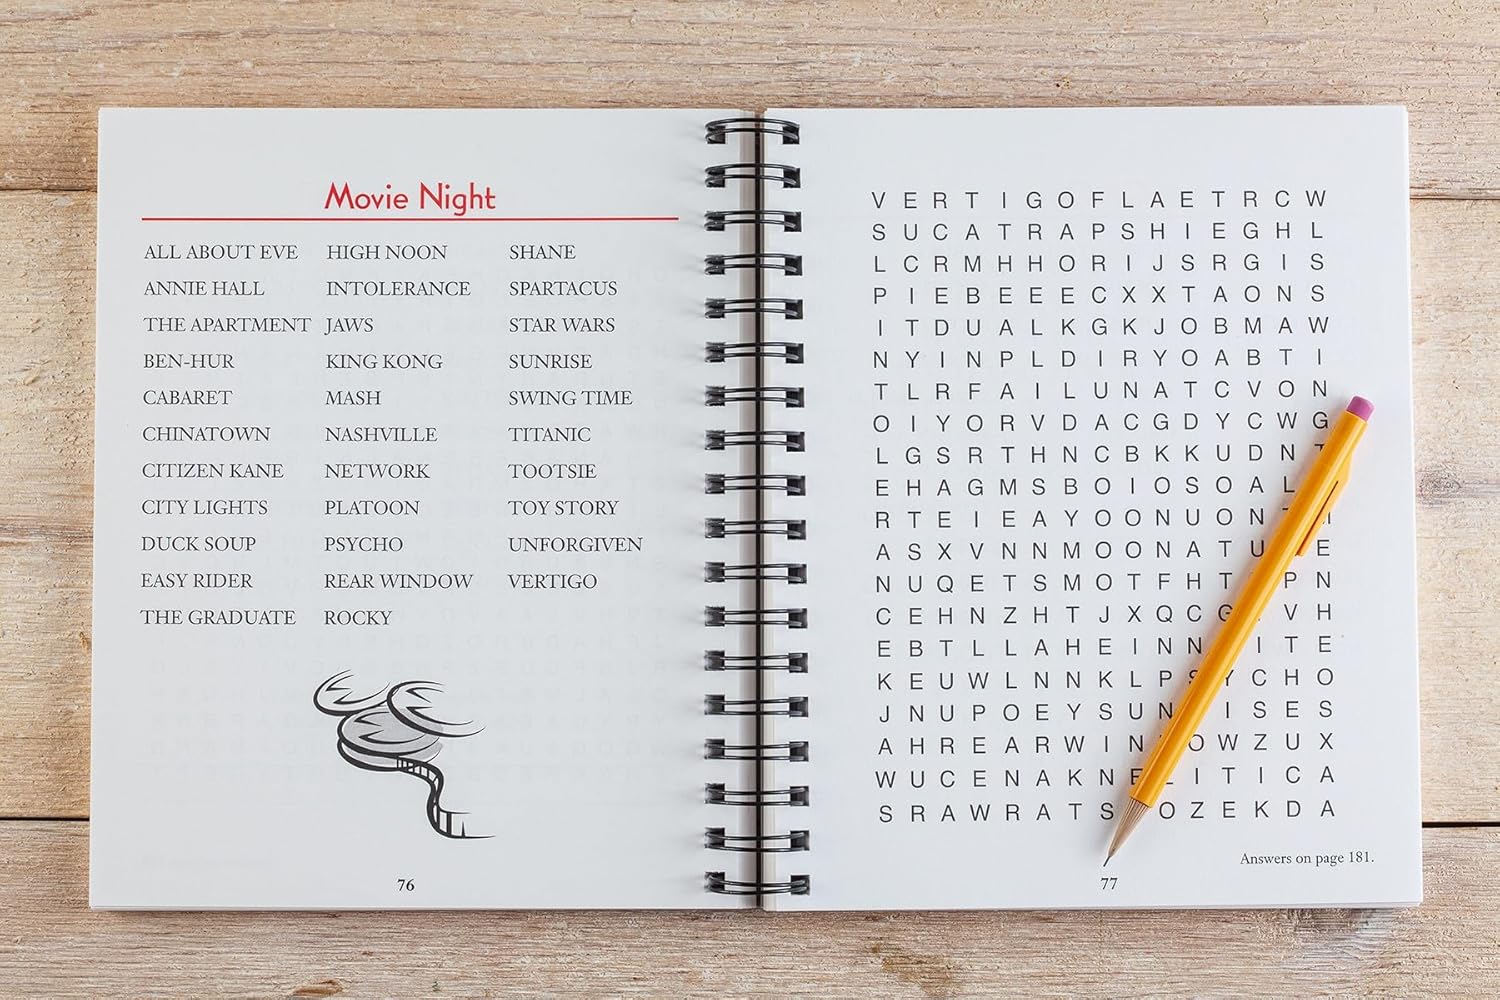 Movie Night
ALL ABOUT EVE HIGH NOON SHANE
ANNIE HALL INTOLERANCE SPARTACUS
THE APARTMENT JAWS STAR WARS
BEN-HUR KING KONG SUNRISE
CABARET MASH SWING TIME
CHINATOWN NASHVILLE TITANIC
CITIZEN KANE NETWORK TOOTSIE
CITY LIGHTS PLATOON TOY STORY
DUCK SOUP PSYCHO UNFORGIVEN
EASY RIDER REAR WINDOW VERTIGO
THE GRADUATE ROCKY
76
V E R T I G O F L A E T R C W
S U C A T R A P S H I E G H L
L C R M H H O R I J S R G I S
P I E B E E E C X X T A O N S
I T D U A L K G K J O B M A W
N Y I N P L D I R Y O A B T I
T L R F A I L U N A T C V O N
O I Y O R V D A C G D Y C W G
L G S R T H N C B K K U D N
E H A G M S B O I O S O A L
R T E I E A Y O O N U O N
A S X V N N M O O N A T U E
N U Q E T S M O T F H T P N
C E H N Z H T J X Q C G V H
E B T L L A H E I N N I T E
K E U W L N N K L P S Y C H O
J N U P O E Y S U N I S E S
A H R E A R W I N O W Z U X
W U C E N A K N E L I T I C A
S R A W R A T S O Z E K D A
Answers on page 181.
77